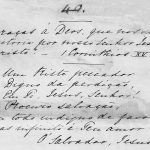 40.
graças á Deos, que nos
victoria por nosso Senhor Jesus
Christo. I Corinthios XV
Um triste peccador
Digno da perdição,
Eu Te, Jesus, Senhor!
salvação,
todo indigno de favor
infinito é Teu amor
O Salvador, Jesus